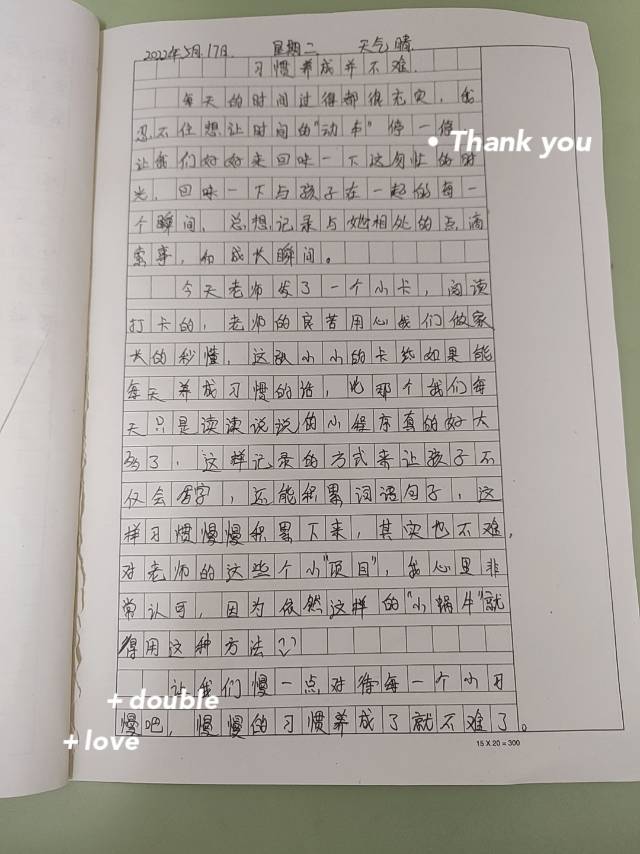 2022年5月17日. 星期二 天气晴
习惯养成并不难.
每天的时间过得都很充实，我
忍不住想让时间的“动车”停一停，
• Thank you
让我们好好来回味一下这匆忙的时
光，回味一下与孩子在一起的每一
个瞬间，总想记录与她相处的点滴
索事，和成长瞬间。
今天老师发了一个小卡，阅读
打卡的，老师的良苦用心我们做家
长的秒懂，这张小小的卡纸如果能
每天养成习惯的话，比那个我们每
天只是读读说说的小程序真的好太
多了，这样记录的方式来让孩子不
仅会写字，还能积累词语句子，这
样习惯慢慢积累下来，其实也不难，
对老师的这些个小“项目”，我心里非
常认可，因为依然这样的“小蜗牛”就
得用这种方法
让我们慢一点对待每一个小习
+ double
慢吧，慢慢的习惯养成了就不难了。
+ love
15 X 20 = 300